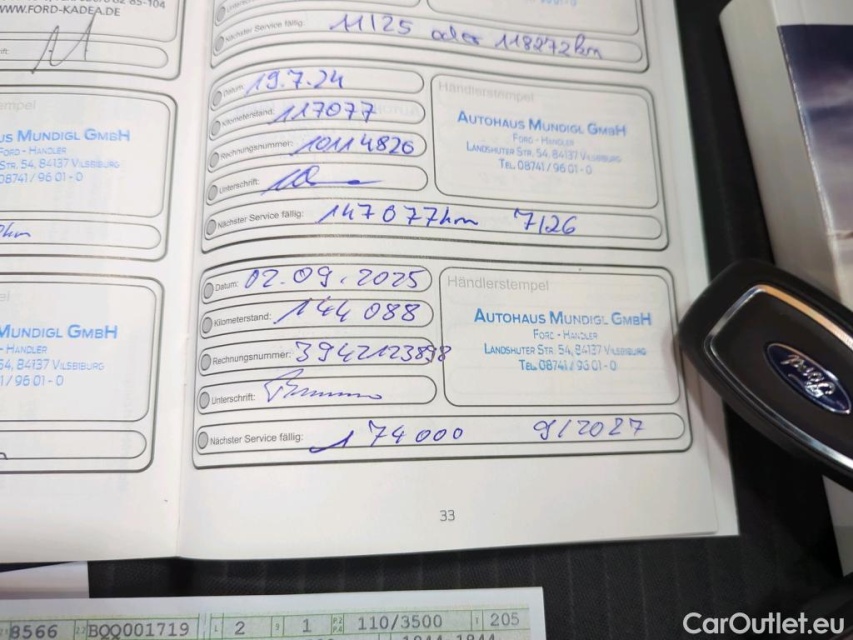 WWW.FORD-KADEA.DE
Nächster Service fällig: 11/25 oder 118272km
Datum: 19.7.24
Kilometerstand: 117077
Rechnungsnummer: 10114826
Unterschrift:
Nächster Service fällig: 147077km 7/26
Händlerstempel
AUTOHAUS MUNDIGL GMBH
FORD - HÄNDLER
LANDSHUTER STR. 54, 84137 VILSBIBURG
TEL. 08741 / 96 01 - 0
Datum: 02.09.2025
Kilometerstand: 144 088
Rechnungsnummer: 3942123898
Unterschrift:
Nächster Service fällig: 174000 9/2027
Händlerstempel
AUTOHAUS MUNDIGL GMBH
FORD - HÄNDLER
LANDSHUTER STR. 54, 84137 VILSBIBURG
TEL. 08741 / 96 01 - 0
US MUNDIGL GMBH
FORD - HÄNDLER
STR. 54, 84137 VILSBIBURG
08741 / 96 01 - 0
km
MUNDIGL GMBH
- HÄNDLER
54, 84137 VILSBIBURG
/ 96 01 - 0
33
Ford
8566 BQQ001719 2 1 110/3500 205
CarOutlet.eu